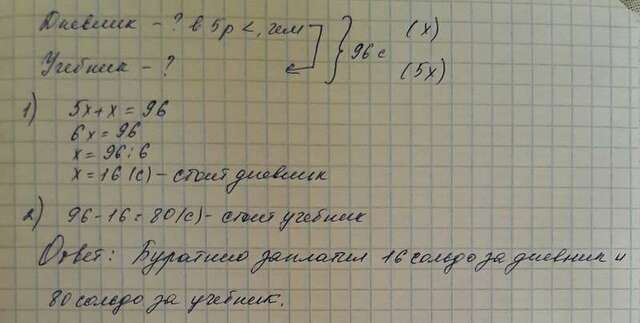 Дневник - ? в 5р <, чем
(x)
96 с
Учебник - ?
(5x)
1) 5x+x = 96
6x = 96
x = 96:6
x = 16 (с) - стоит дневник
2) 96-16 = 80 (с) - стоит учебник
Ответ: Буратино заплатил 16 сольдо за дневник и
80 сольдо за учебник.